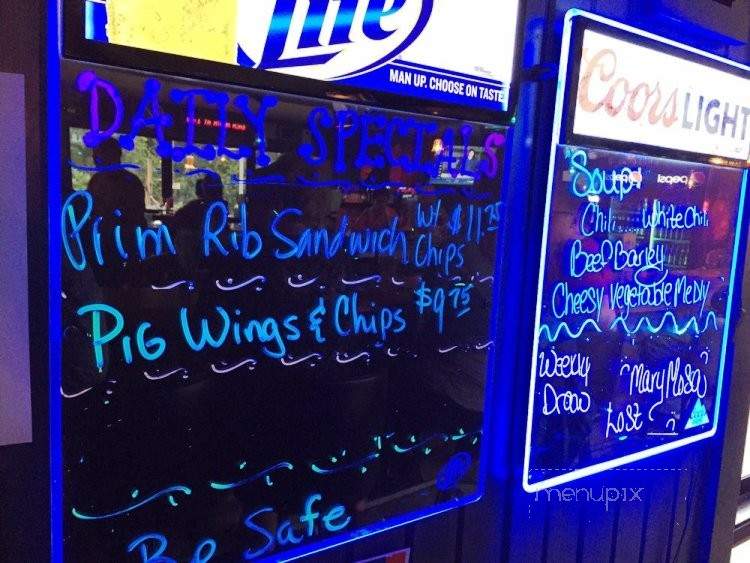 Lite
MAN UP. CHOOSE ON TASTE
DAILY SPECIALS
Prim Rib Sandwich w/ Chips $11.25
PIG Wings & Chips $9.75
Be Safe
Coors LIGHT
Soup
Chili White Chili
Beef Barley
Cheesy Vegetable Medly
Weekly Draw
Mary
Lost
menupix